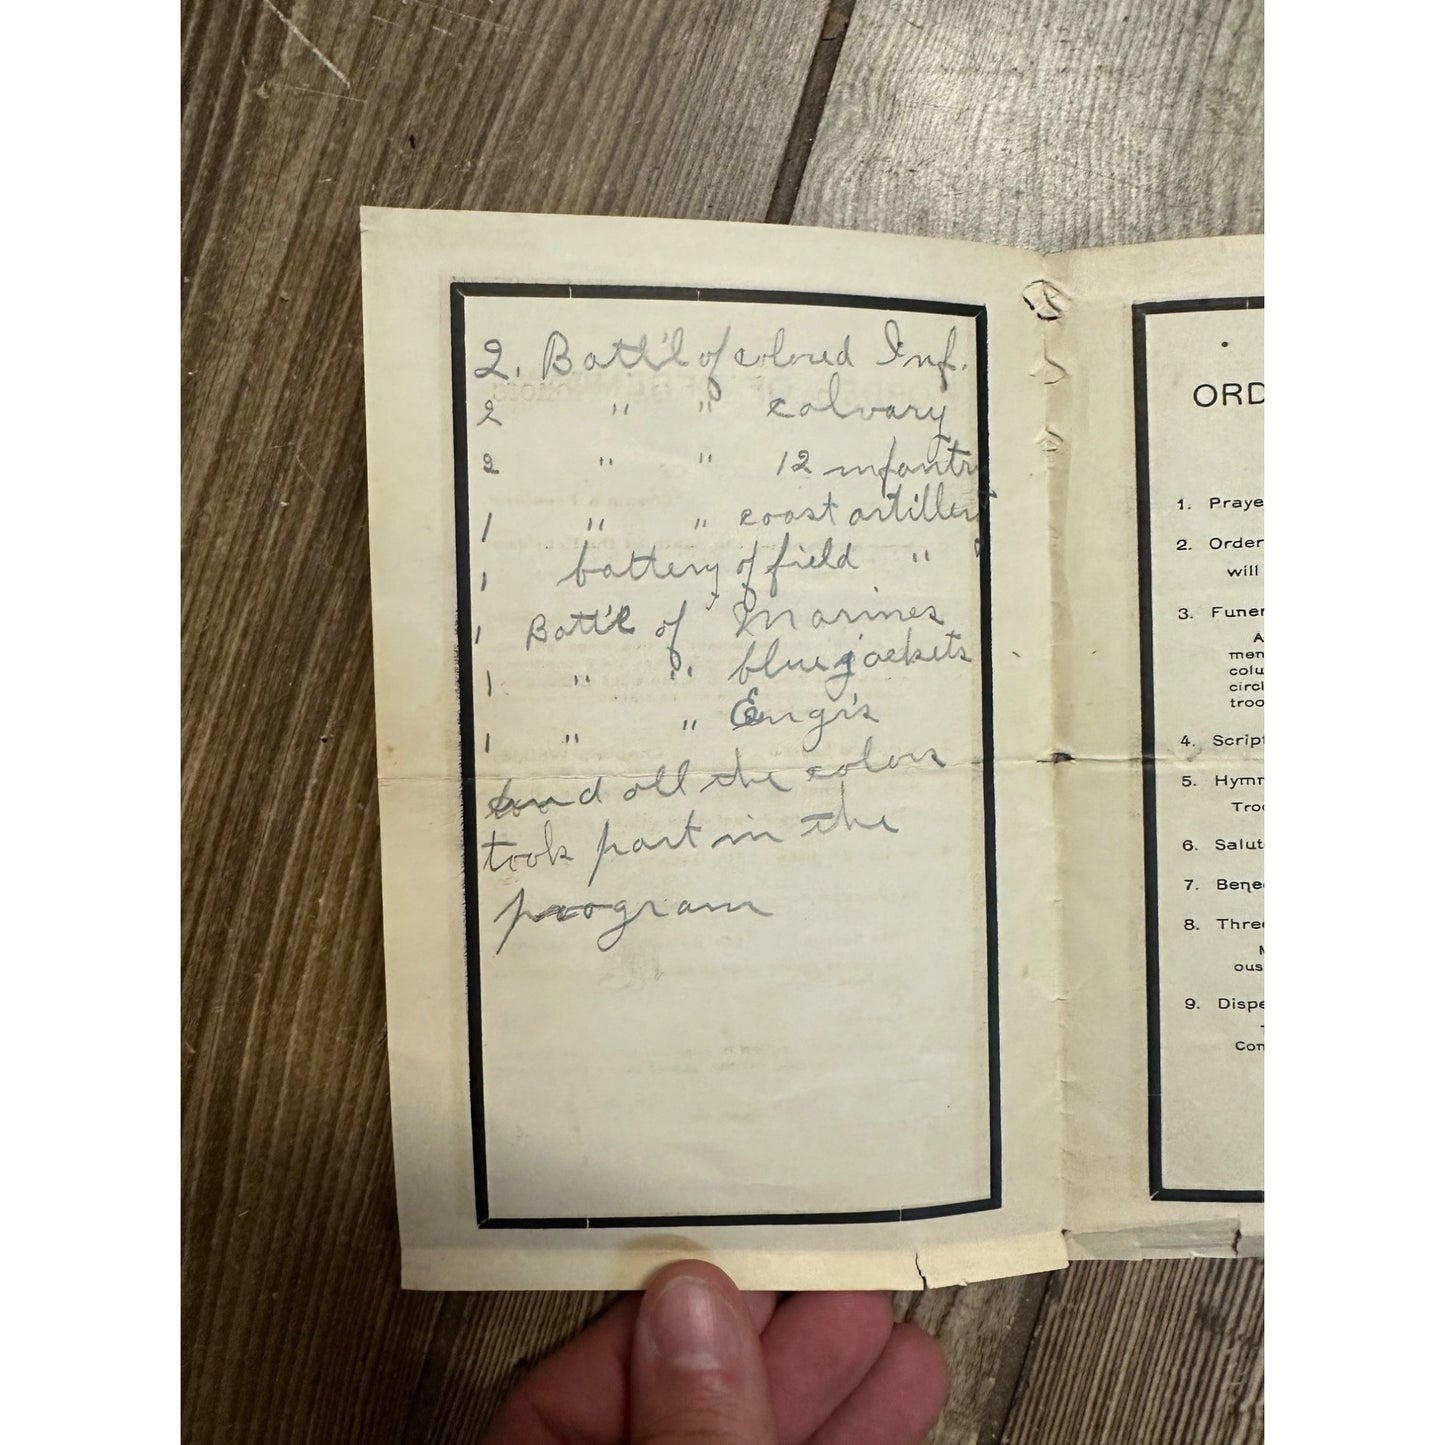 2. Batt'l of colored Inf.
2 " " calvary
2 " " 12 infantry
1 " " coast artillery
1 battery of field "
1 Batt'l of Marines
1 " " blue jackets
1 " " Engr's
and all the colors
took part in the
program
ORD
1. Praye
2. Order
will
3. Funer
A
men
colu
circl
troo
4. Script
5. Hymn
Troo
6. Salut
7. Bene
8. Three
M
ous
9. Dispe
Con